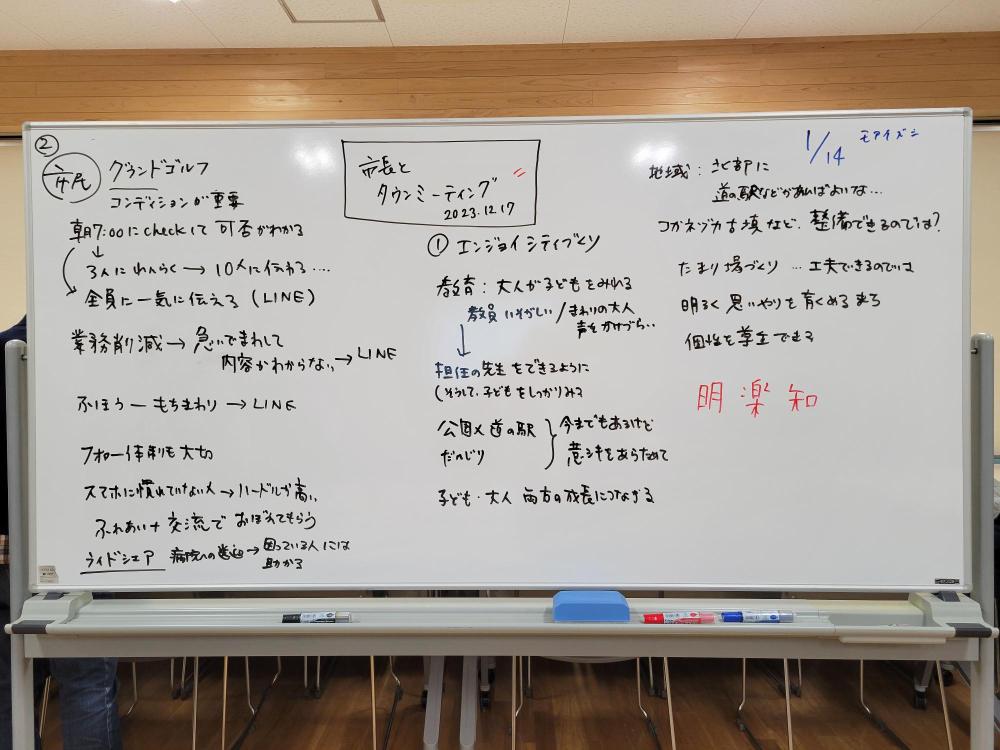 ②
市民
グランドゴルフ
コンディションが重要
朝7:00にcheckして 可否がわかる
↓
3人にれんらく→10人に伝わる‥‥
全員に一気に伝えろ(LINE)
業務削減→急いでまわして
内容がわからない→LINE
ふほう ー もちまわり →LINE
フォロー体制も大切
スマホに慣れていない人→ハードルが高い
ふれあい+交流で おぼえてもらう
ライドシェア 病院への →困っている人には
助かる
市長と
タウンミーティング
2023.12.17
① エンジョイシティづくり
教育:大人が子どもをみれる
教員いそがしい/まわりの大人
声をかけづら‥
↓
担任の先生をできるように
(そうして、子どもをしっかりみる
公園×道の駅
だんじり
}今までもあるけど
意シキをあらためて
子ども・大人 両方の成長につながる
1/14 モアイズシ
地域:さく部に
道の駅などがあればよいな…
コガネヅカ古墳など、整備できるのでは?
たまり場づくり …工夫できるのでは
明るく思いやりを育くめるまち
個性を尊重できる
明 楽 知